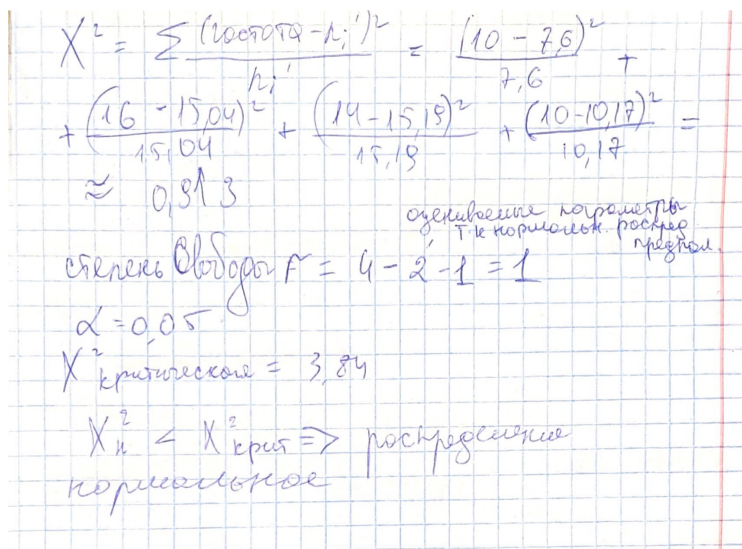 X² = Σ (частота - nᵢ')² / nᵢ' = (10 - 7,6)² / 7,6 +
+ (16 - 15,04)² / 15,04 + (14 - 15,19)² / 15,19 + (10 - 10,17)² / 10,17 =
≈ 0,913
оцениваемые параметры
т.к нормальн. распред
предпол.
степень свободы F = 4 - 2 - 1 = 1
α = 0,05
X² критическая = 3,84
X²н < X²крит => распределение
нормальное